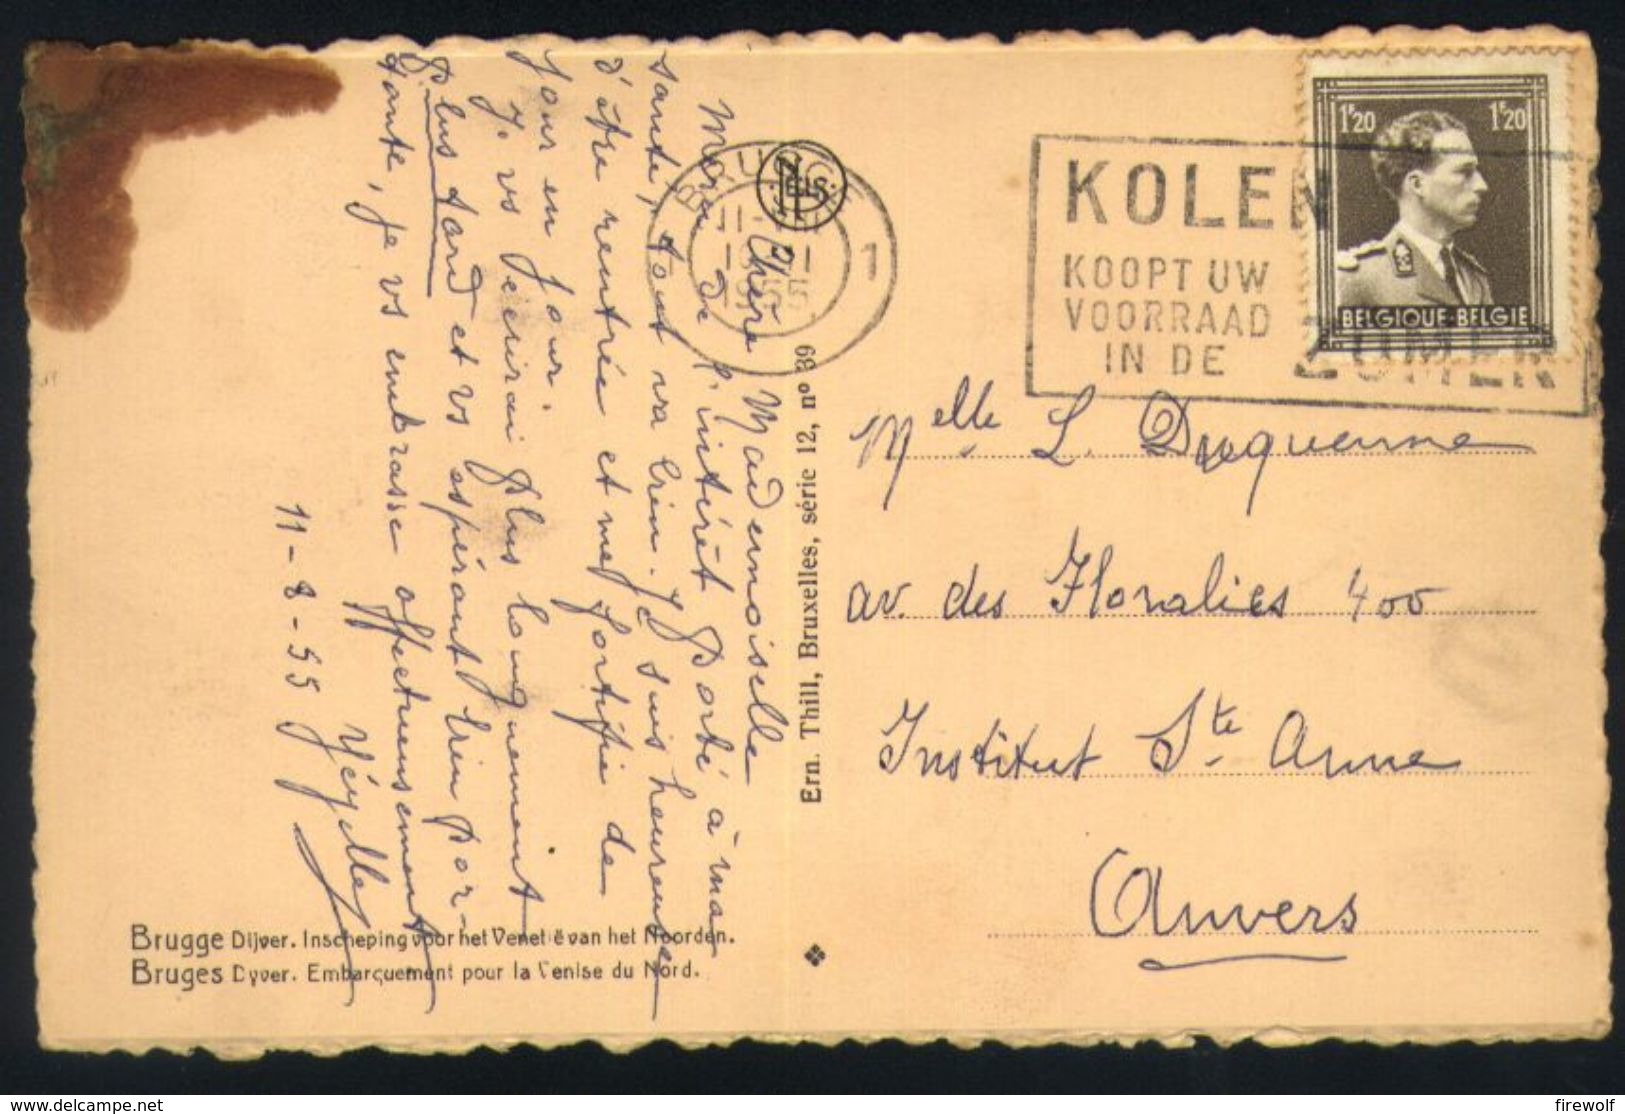 Chère Mademoiselle
Merci de l'intérêt porté à ma
santé, tout va bien. Je suis heureuse
d'être rentrée et me fortifie de
jour en jour.
Je vs écrirai plus longuement
plus tard et vs espérant bien por-
tante, je vs embrasse affectueusement
11-8-55
BRUGGE 1
1955
NELS
Ern. Thill, Bruxelles, série 12, nº 39
KOLEN
KOOPT UW
VOORRAAD
IN DE ZOMER
1F20 1F20
BELGIQUE-BELGIE
Melle L. Duquenne
av. des Floralies 400
Institut Ste Anne
Anvers
Brugge Dijver. Inscheping voor het Venetië van het Noorden.
Bruges Dyver. Embarquement pour la Venise du Nord.
https://www.delcampe.net
firewolf